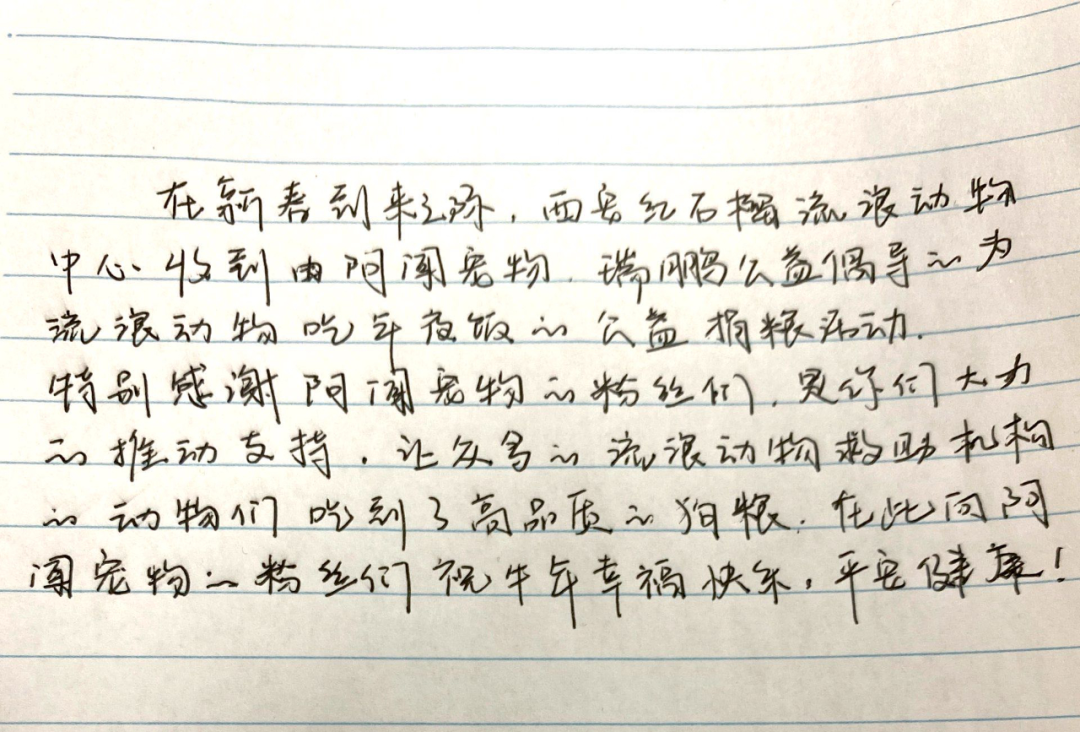 在新春到来之际，西安红石榴流浪动物
中心收到由阿闻宠物、瑞鹏公益倡导的为
流浪动物吃年夜饭的公益捐粮活动.
特别感谢阿闻宠物的粉丝们，是你们大力
的推动支持，让众多的流浪动物救助机构
的动物们吃到了高品质的狗粮. 在此向阿
闻宠物的粉丝们祝牛年幸福快乐，平安健康！